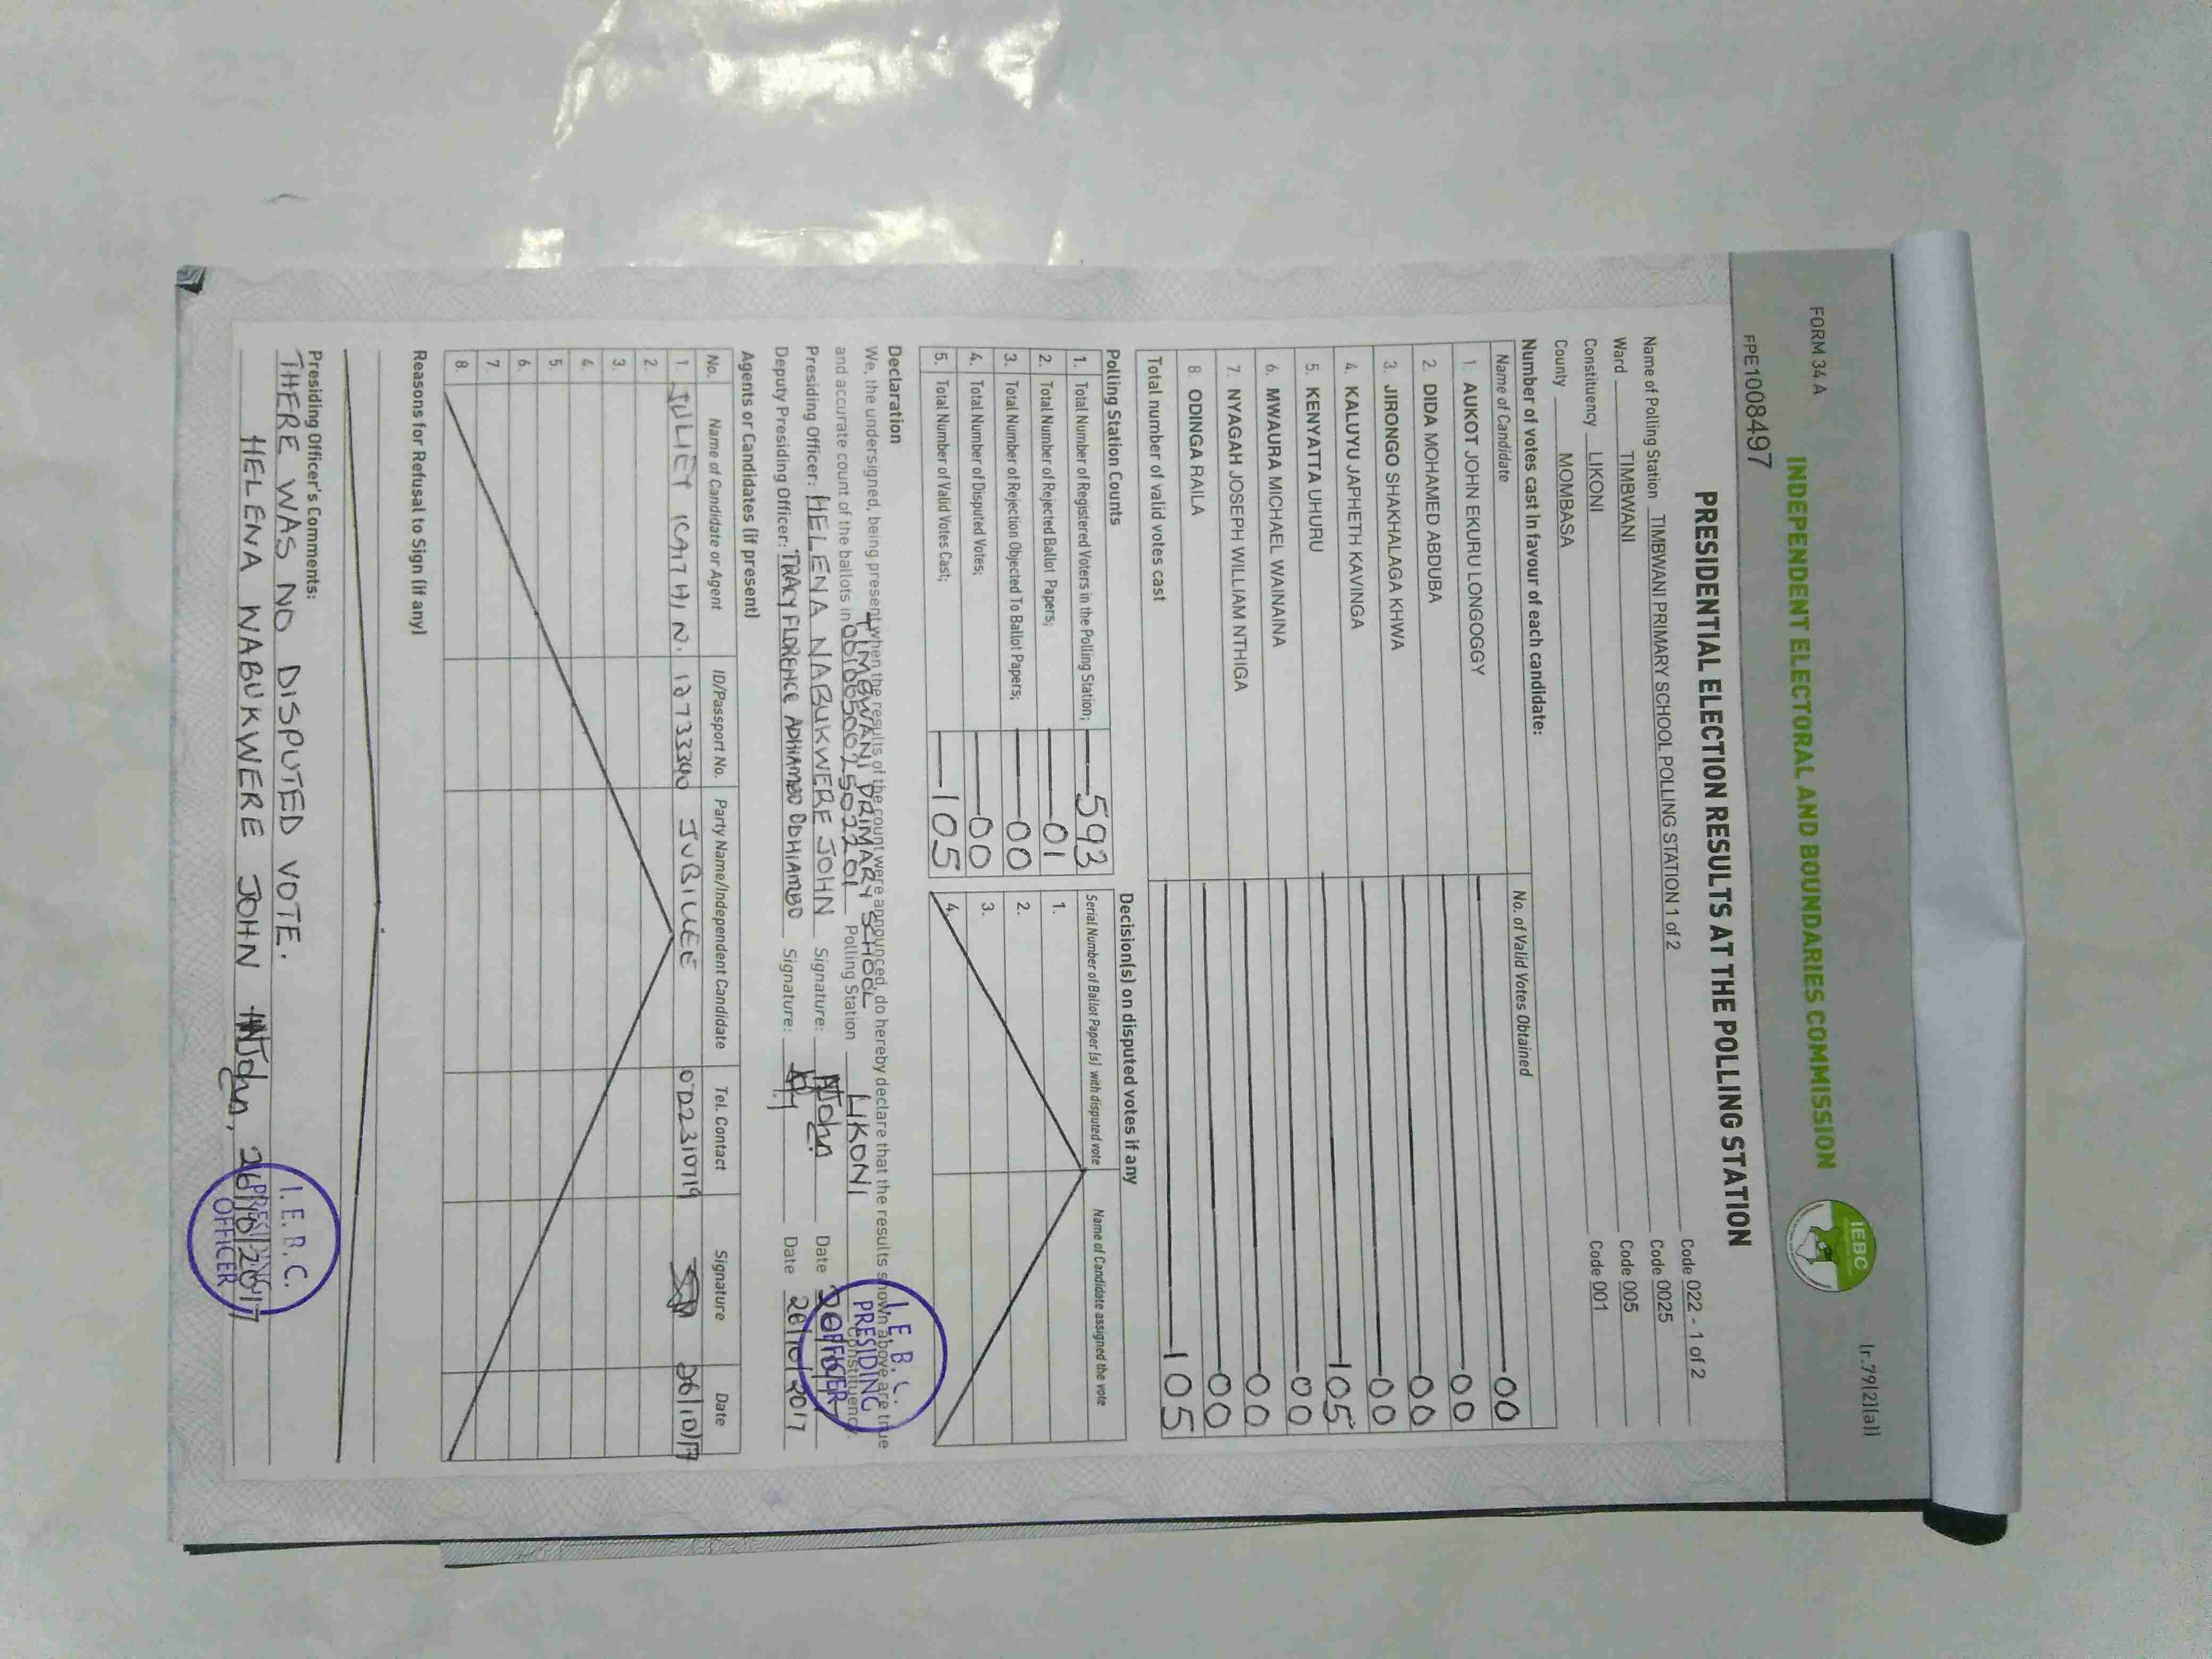 FORM 34 A
Ir.79(2)(a)
INDEPENDENT ELECTORAL AND BOUNDARIES COMMISSION
IEBC
FPE1008497
PRESIDENTIAL ELECTION RESULTS AT THE POLLING STATION
Name of Polling Station TIMBWANI PRIMARY SCHOOL POLLING STATION 1 of 2 Code 022 - 1 of 2
Ward TIMBWANI Code 0025
Constituency LIKONI Code 005
County MOMBASA Code 001
Number of votes cast in favour of each candidate:
Name of Candidate No. of Valid Votes Obtained
1. AUKOT JOHN EKURU LONGOGGY 00
2. DIDA MOHAMED ABDUBA 00
3. JIRONGO SHAKHALAGA KHWA 00
4. KALUYU JAPHETH KAVINGA 00
5. KENYATTA UHURU 105
6. MWAURA MICHAEL WAINAINA 00
7. NYAGAH JOSEPH WILLIAM NTHIGA 00
8. ODINGA RAILA 00
Total number of valid votes cast 105
Polling Station Counts
1. Total Number of Registered Voters in the Polling Station; 593
2. Total Number of Rejected Ballot Papers; 01
3. Total Number of Rejection Objected To Ballot Papers; 00
4. Total Number of Disputed Votes; 00
5. Total Number of Valid Votes Cast; 105
Decision(s) on disputed votes if any
Serial Number of Ballot Paper (s) with disputed vote Name of Candidate assigned the vote
1.
2.
3.
4.
Declaration
We, the undersigned, being present when the results of the count were announced, do hereby declare that the results shown above are true
TIMBWANI PRIMARY SCHOOL
and accurate count of the ballots in Polling Station LIKONI Constituency.
Presiding Officer: HELENA NABUKWERE JOHN Signature: HNJohn Date
Deputy Presiding Officer: TRACY FLORENCE ADHIAMBO ODHIAMBO Signature: Date 26/10/2017
I. E. B. C.
PRESIDING
OFFICER
Agents or Candidates (if present)
No. Name of Candidate or Agent ID/Passport No. Party Name/Independent Candidate Tel. Contact Signature Date
1. JULIET 12733340 JUBILEE 0722310719 26/10/17
2.
3.
4.
5.
6.
7.
8.
Reasons for Refusal to Sign (if any)
Presiding Officer's Comments:
THERE WAS NO DISPUTED VOTE.
HELENA NABUKWERE JOHN HNJohn, 26/10/2017
I. E. B. C.
PRESIDING
OFFICER